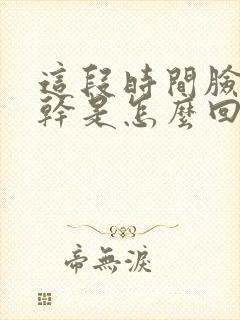 這段時間臉
幹是怎麼回
帝無淚